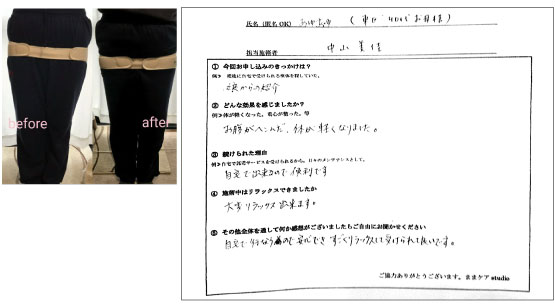 before
after
氏名(匿名OK)
(東口 40代お母様)
担当施術者
中山 美佳
① 今回お申し込みのきっかけは?
例>産後に自宅で受けられる整体を探していた。
友達からの紹介
② どんな効果を感じましたか?
例>体が軽くなった。重心が整った。等
お腹がへこんだ、体が軽くなりました。
③ 続けられた理由
例>自宅で託児サービスを受けられるから。日々のメンテナンスとして。
自宅で出来るので便利です
④ 施術中はリラックスできましたか
大変リラックス出来ます。
⑤ その他全体を通して何か感想がございましたらご自由にお聞かせください
自宅で行なう為ので安心でき すごくリラックスして受けられて良いです。
ご協力ありがとうございます。ままケア studio